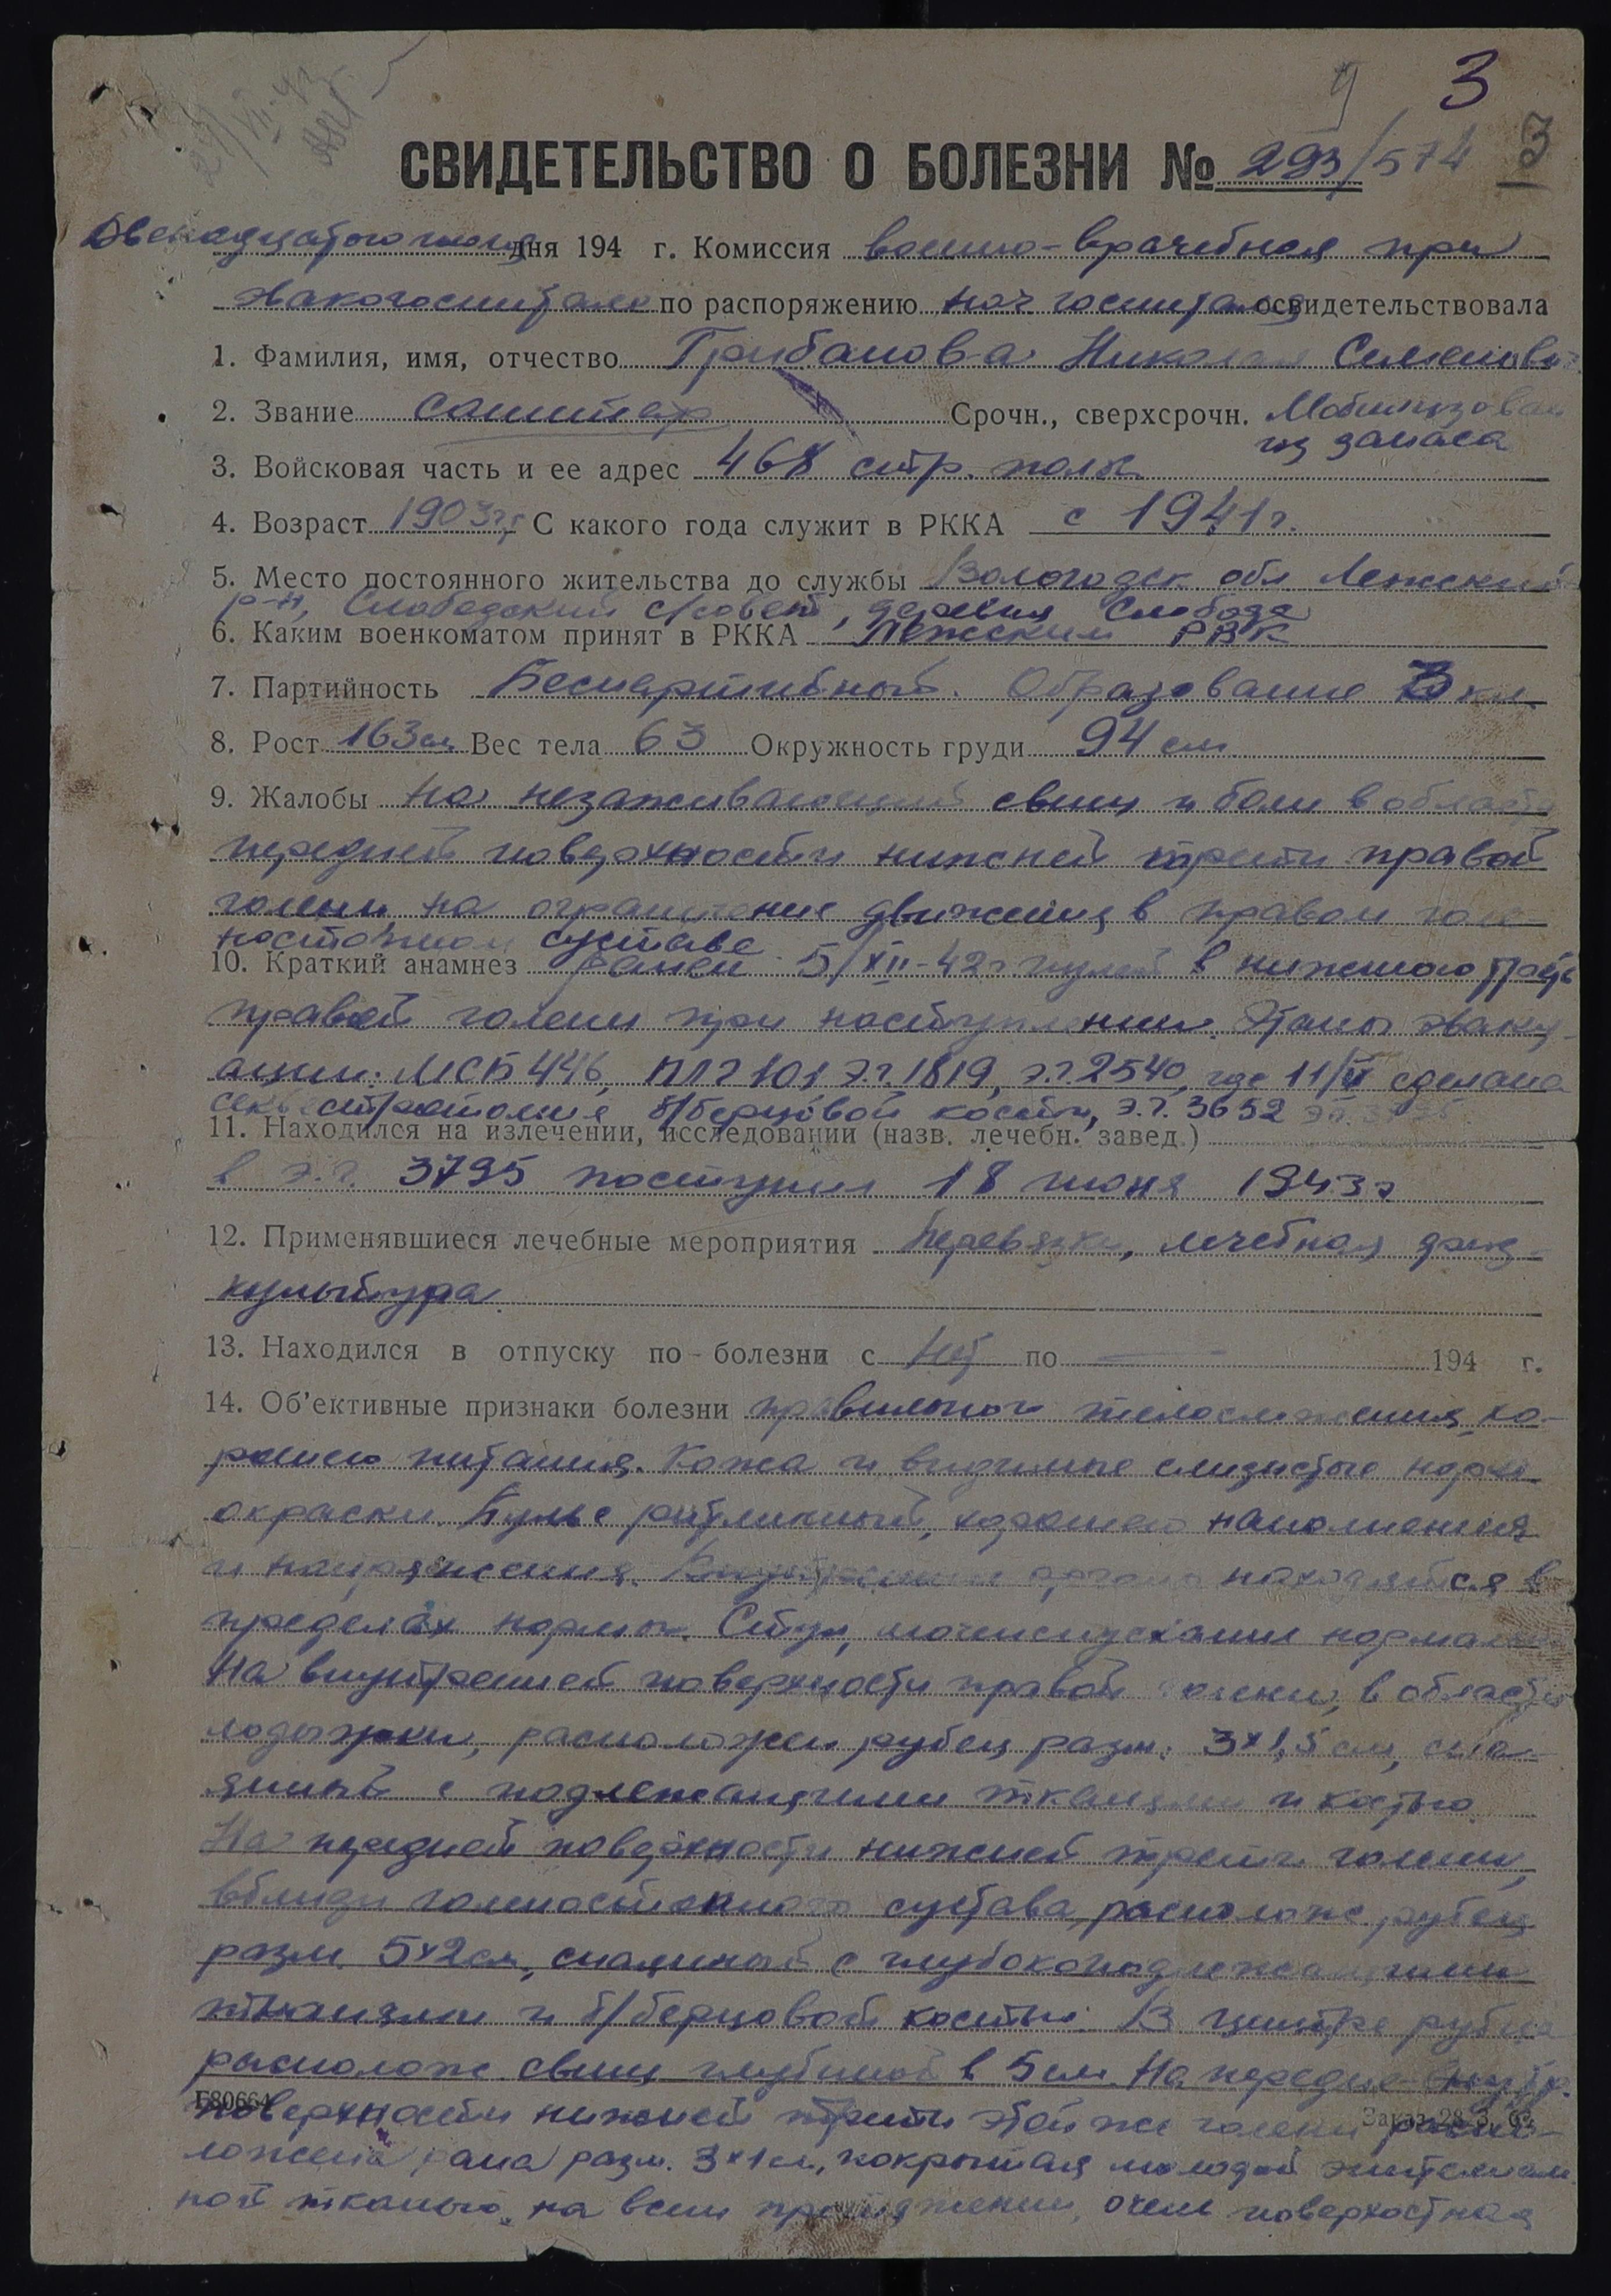 9 3
СВИДЕТЕЛЬСТВО О БОЛЕЗНИ № 293/574
13
Двенадцатого июля дня 194 г. Комиссия военно-врачебная при
эвакогоспитале по распоряжению нач. госпиталя освидетельствовала
1. Фамилия, имя, отчество Грибанова Николая Семенови
2. Звание санитар Срочн., сверхсрочн. Мобилизован
из запаса
3. Войсковая часть и ее адрес 468 стр. полк
4. Возраст 1903 г. С какого года служит в РККА с 1941 г.
5. Место постоянного жительства до службы Вологодск обл Лежский
р-н, Слободский с/совет, деревня Слобода
6. Каким военкоматом принят в РККА Лежским РВК
7. Партийность Беспартийный. Образование 3 кл.
8. Рост 163 см Вес тела 63 Окружность груди 94 см
9. Жалобы На незаживающий свищ и боли в области
передней поверхности нижней трети правой
голени на ограничение движения в правом голе-
ностопном суставе
10. Краткий анамнез Ранен 5/XII-42 г пулей в нижнюю треть
правой голени при наступлении. Этапы эваку-
ации: МСБ 446, ППГ 101 Э.г. 1819, э.г. 2540, где 11/ сделана
секвестротомия б/берцовой кости, э.г. 3652
11. Находился на излечении, исследовании (назв. лечебн. завед.)
в э.г. 3795 поступил 18 июня 1943 г
12. Применявшиеся лечебные мероприятия Перевязки, лечебная физ-
культура
13. Находился в отпуску по болезни с Нет по — 194 г.
14. Об'ективные признаки болезни правильного телосложения, хо-
рошего питания. Кожа и видимые слизистые норм.
окраски. Пульс ритмичный, хорошего наполнения
и напряжения. Внутренние органы находятся в
пределах нормы. Стул, мочеиспускание нормальн
На внутренней поверхности правой голени, в области
лодыжки, расположен рубец разм. 3х1,5 см, спа-
янный с подлежащими тканями и костью
На передней поверхности нижней трети голени,
вблизи голеностопного сустава, располож. рубец
разм. 5х2 см, спаянный с глубокоподлежащими
тканями и б/берцовой костью. В центре рубца
располож. свищ глубиной в 5 см. На передне-внутр.
Г80664 Заказ 28-3, 63
поверхности нижней трети этой же голени распо-
ложена рана разм. 3х1 см, покрытая молодой эпителиаль
ной тканью, на всем протяжении, очень поверхостная